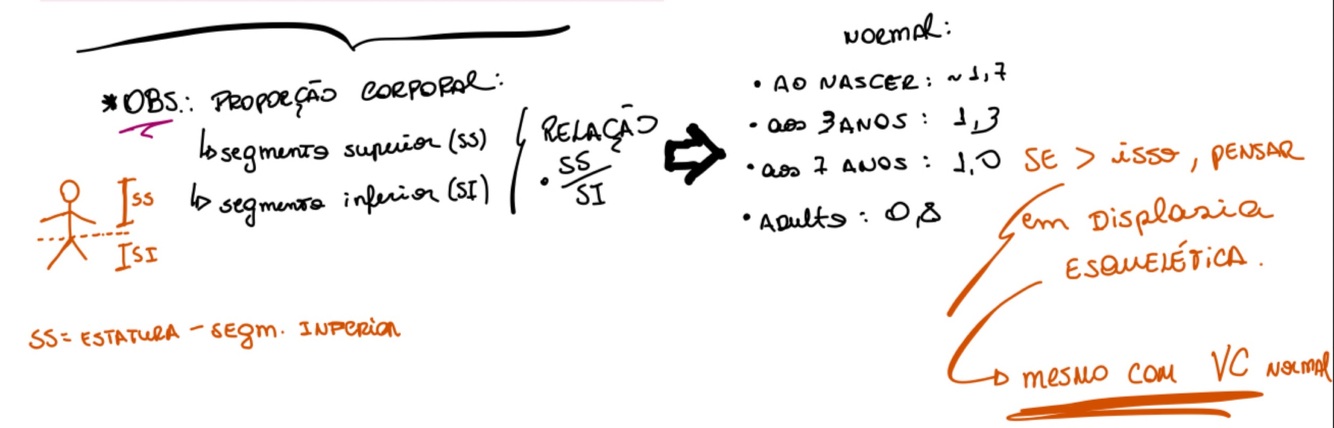 *OBS.: PROPORÇÃO CORPORAL:
↳ segmento superior (SS)
↳ segmento inferior (SI)
RELAÇÃO
• SS/SI
SS
SI
SS = ESTATURA - SEGM. INFERIOR
NORMAL:
• AO NASCER: ~1,7
• aos 3 ANOS: 1,3
• aos 7 ANOS: 1,0
• ADULTO: 0,8
SE > isso, PENSAR
em DISPLASIA
ESQUELÉTICA.
→ MESMO COM VC NORMAL